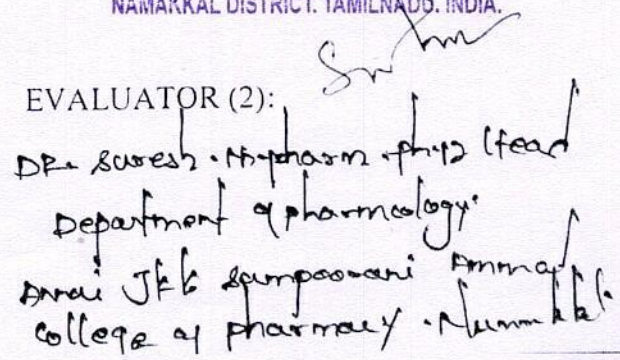 NAMAKKAL DISTRICT. TAMILNADU. INDIA.
EVALUATOR (2):
DR. Suresh. M.pharm. Head
Department of pharmcology.
Annai JKK Sampoorani Ammal
college of pharmacy.